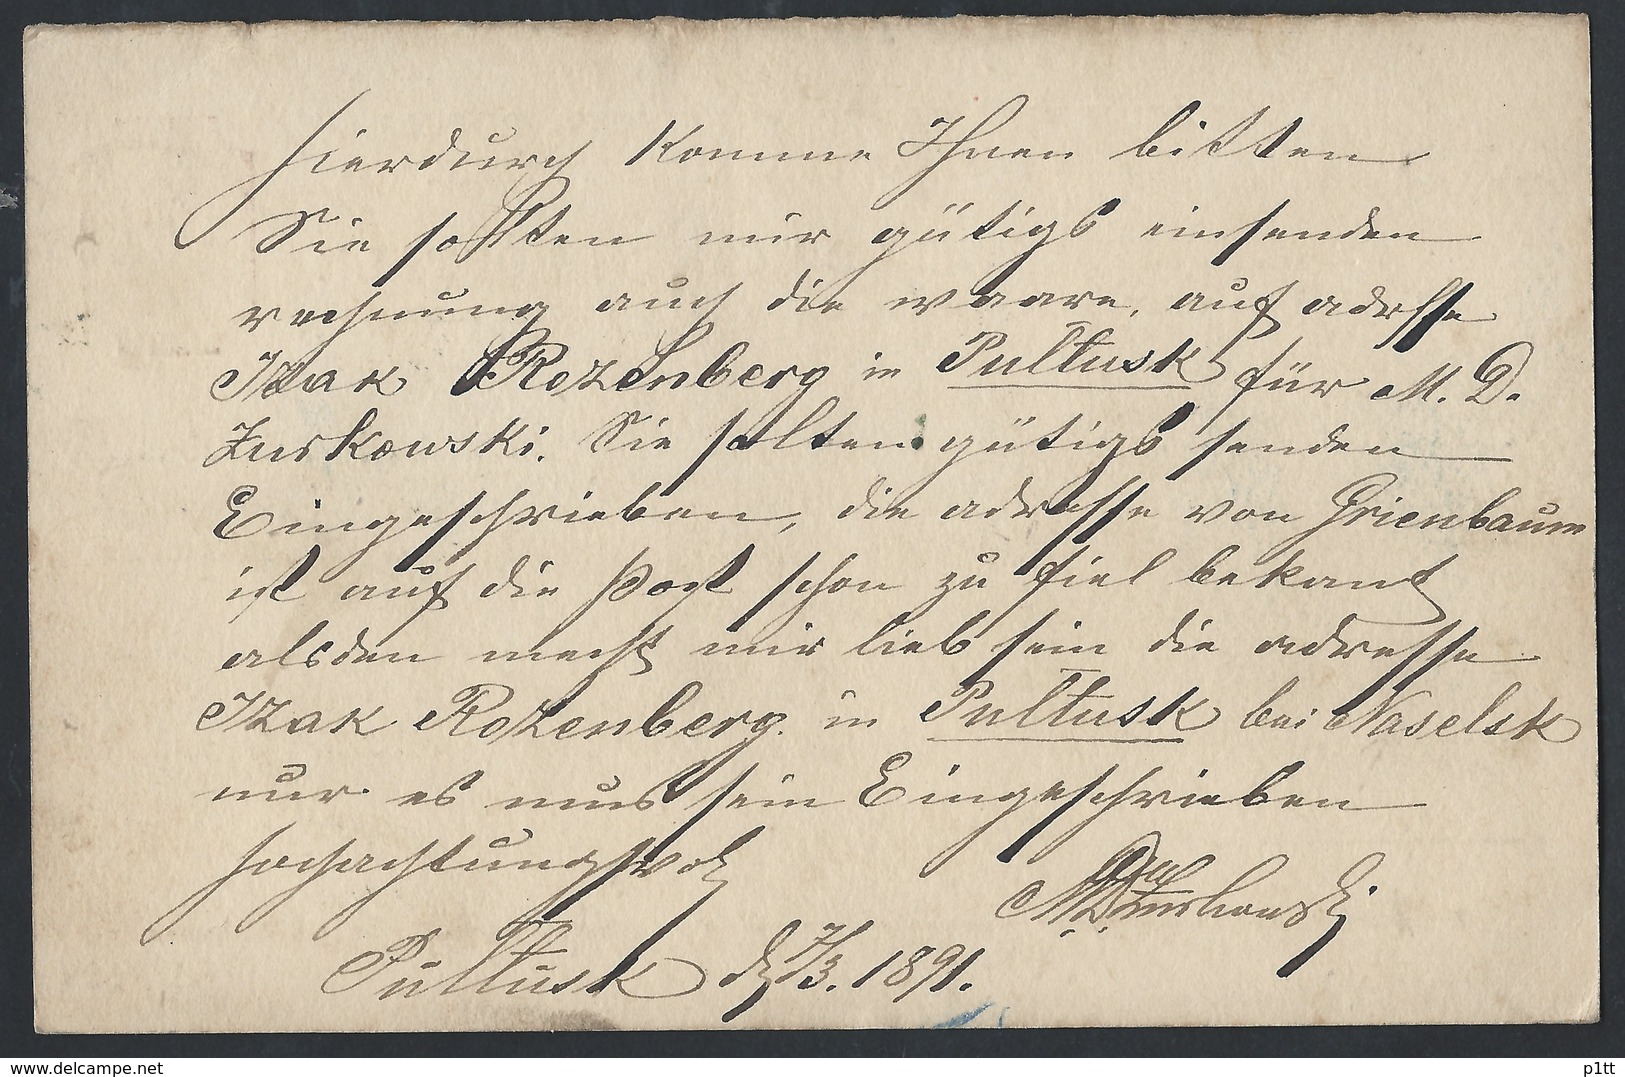 Hierdurch komme Ihnen bitten
Sie sollten mir gütigs einsenden
rechnung auch die waare, auf adresse
Izak Rozenberg in Pultusk für M. D.
Zurkowski. Sie solten gütigs senden
Eingeschrieben, die adresse von Grienbaum
ist auf die Post schon zu fiel bekant
alsden mecht mir lieb sein die adresse
Izak Rozenberg. in Pultusk bei Naselsk
nur es mus sein Eingeschrieben
Hochachtungsvoll
M. D. Zurkowski
Pultusk d 7/3. 1891.
www.delcampe.net
p1tt